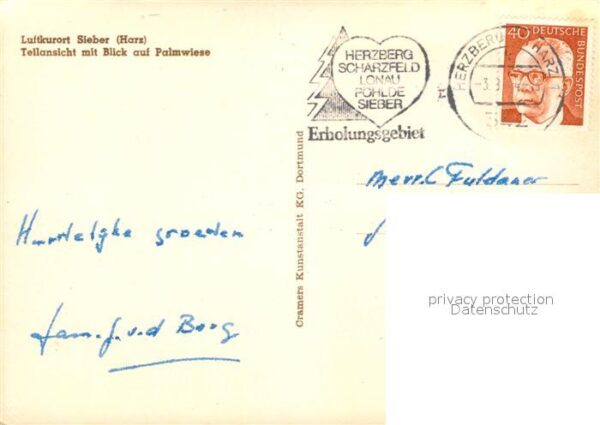 Luftkurort Sieber (Harz)
Teilansicht mit Blick auf Palmwiese
HERZBERG
SCHARZFELD
LONAU
POHLDE
SIEBER
Erholungsgebiet
HERZBERG HARZ 1
342
40
DEUTSCHE BUNDESPOST
Cramers Kunstanstalt KG, Dortmund
Fuldauer
Hartelyke groeten
fam. J. v. d Borg
privacy protection
Datenschutz